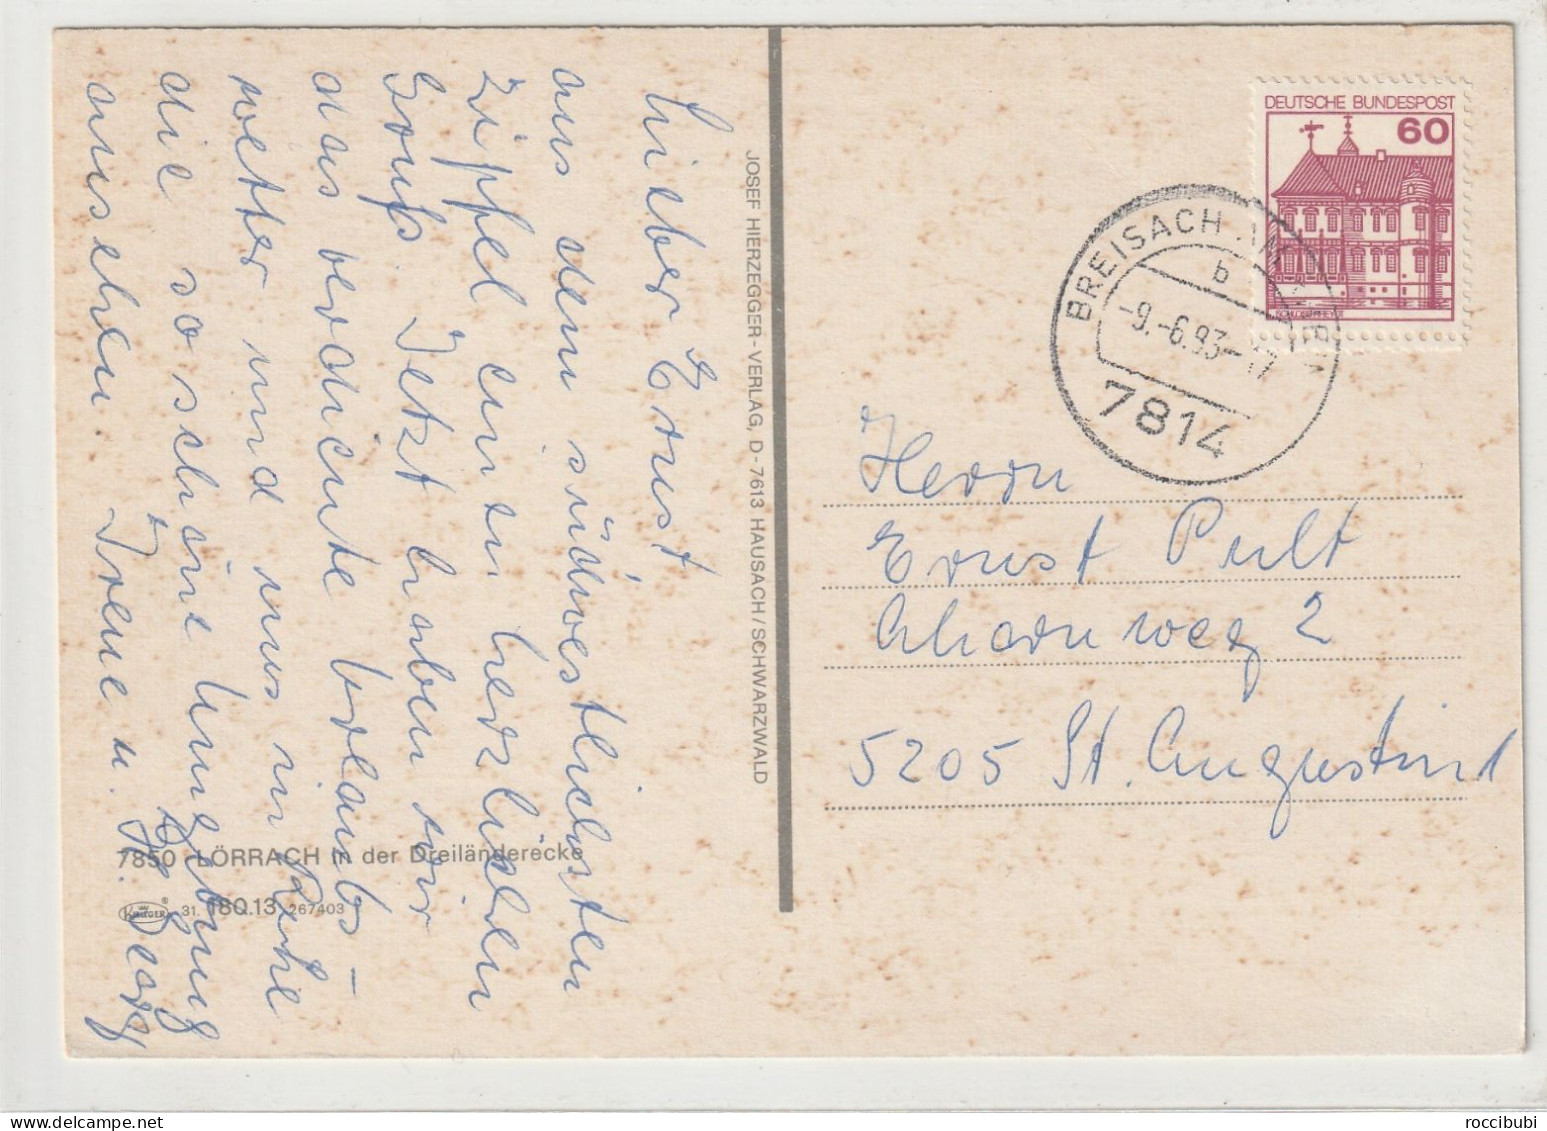 Lieber Ernst
aus dem südwestlichsten
Zipfel einen herzlichen
Gruß. Jetzt haben wir
das verdiente Urlaubs-
wetter und uns in Ruhe
die so schöne Umgebung
ansehen.
Irene u. H.
JOSEF HIERZEGGER-VERLAG, D-7613 HAUSACH/SCHWARZWALD
7850 LÖRRACH in der Dreiländerecke
KRÜGER ® 31. 180.13 267403
DEUTSCHE BUNDESPOST
60
SCHLOSS RHEYDT
BREISACH AM
b
-9.-6.93-17
7814
Herrn
Ernst Pult
Ahornweg 2
5205 St. Augustin 1
roccibubi